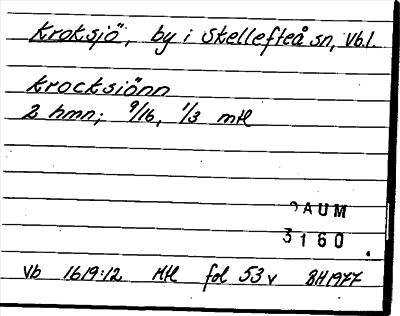 Kroksjö, by i Skellefteå sn, Vb.l.
Krocksiönn
2 hmn; 9/16, 1/3 mtl
DAUM
3160.
Vb 1619:12 Mtl fol 53 v BH1977